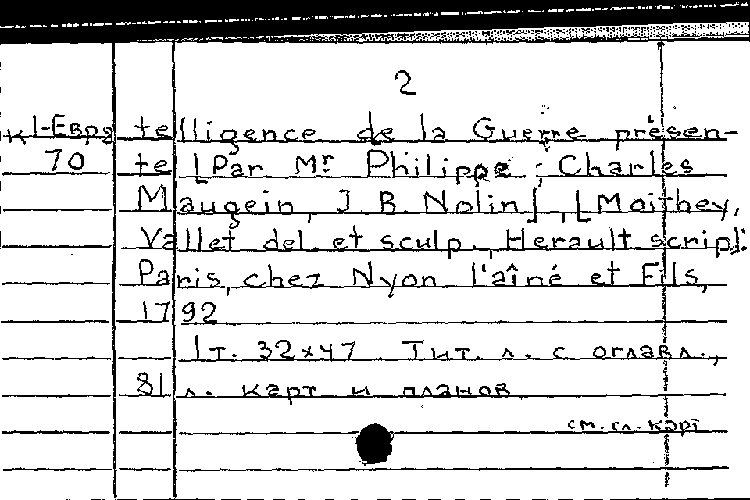 2
к1-Евра telligence de la Guerre présen-
70 te [Par Mr Philippe; Charles
Maugein, J. B. Nolin], [Moithey,
Vallet del. et sculp., Herault scrips.]
Paris, chez Nyon l'aîné et Fils,
1792
1т. 32×47 Тит. л. с оглавл.,
81 л. карт и планов
см. гл. карт